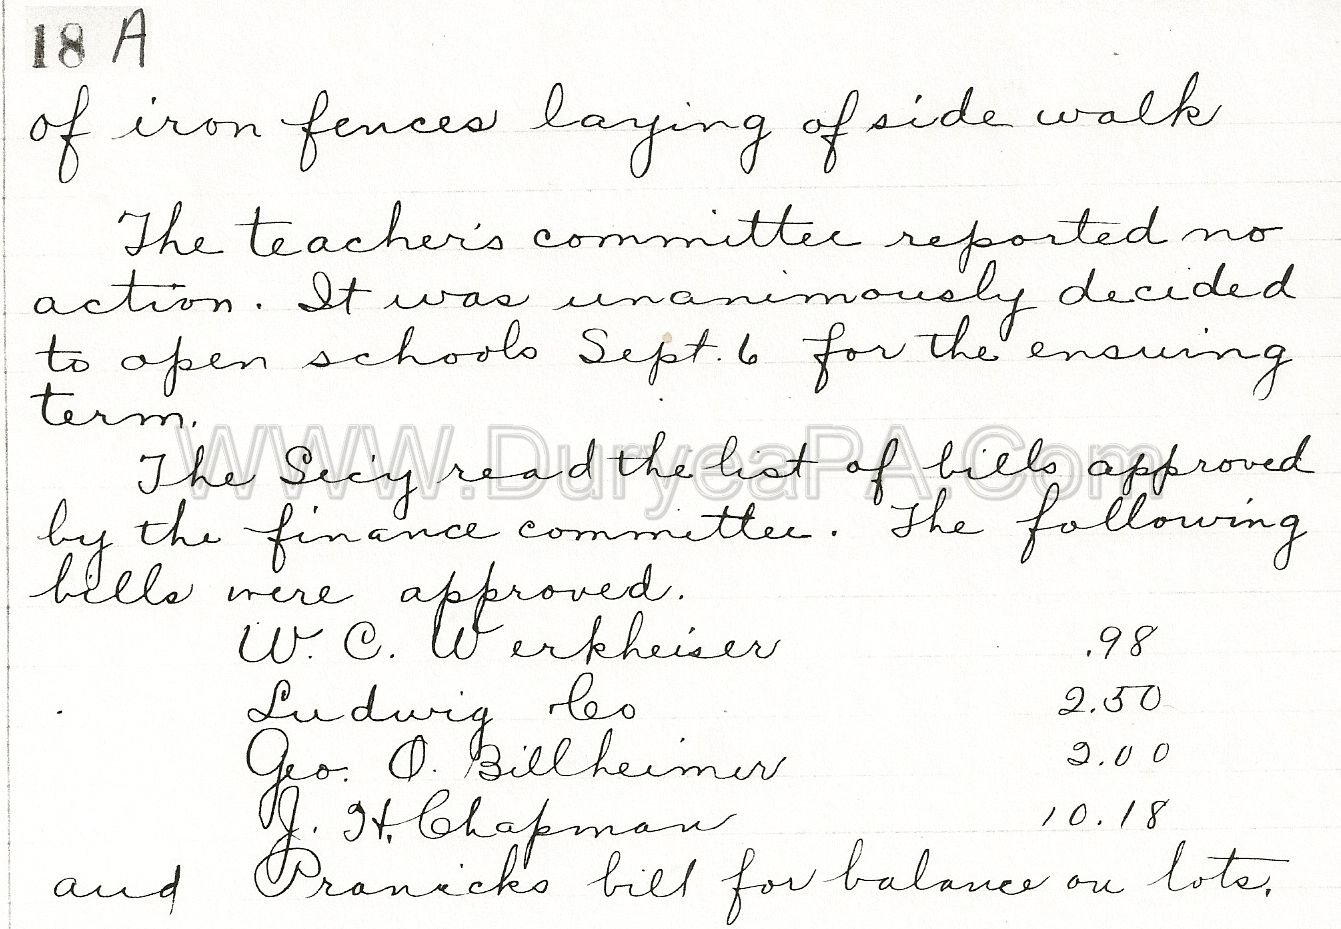 18 A
of iron fences laying of side walk
The teacher's committee reported no
action. It was unanimously decided
to open schools Sept. 6 for the ensuing
term.
WWW.DuryeaPA.Com
The Sec'y read the list of bills approved
by the finance committee. The following
bills were approved.
W. C. Werkheiser .98
Ludwig Co 2.50
Geo. O. Billheimer 2.00
J. H. Chapman 10.18
and Pranicks bill for balance on lots.